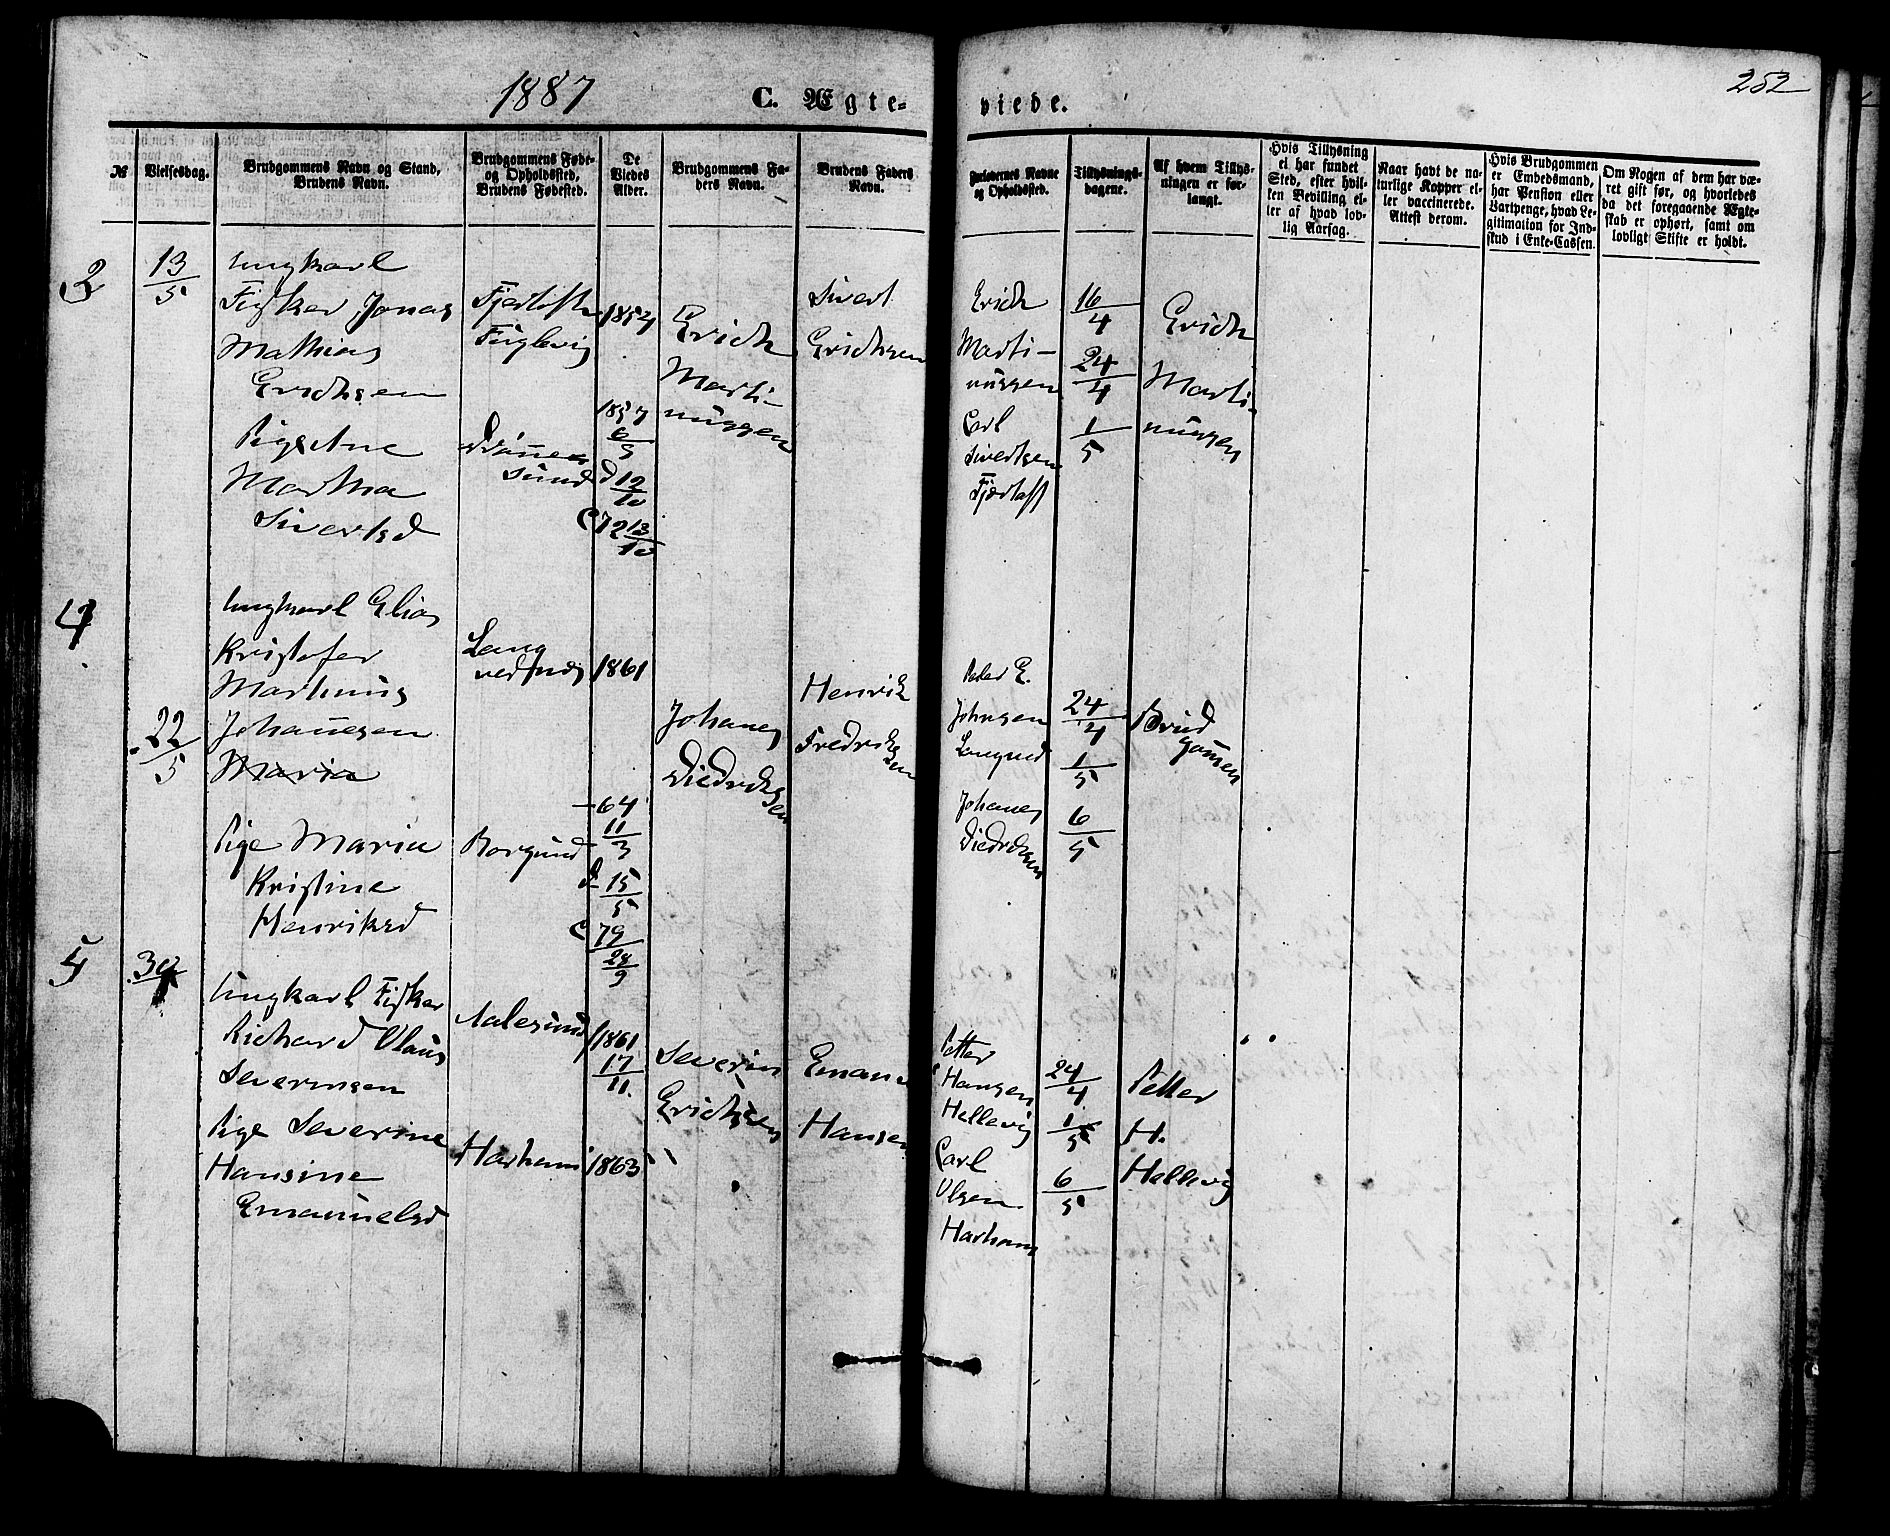 1887
C. Ægte-
viede.
252
№
Vielsesdag.
Brudgommens Navn og Stand,
Brudens Navn.
Brudgommens Føde-
og Opholdssted,
Brudens Fødested.
De
Viedes
Alder.
Brudgommens Fa-
ders Navn.
Brudens Faders
Navn.
Forlovernes Navne
og Opholdssted.
Tillysnings-
dagene.
Af hvem Tillys-
ningen er for-
langt.
Hvis Tillysning
ei har fundet
Sted, efter hvil-
ken Bevilling el-
ler af hvad lov-
lig Aarsag.
Naar havt de na-
turlige Kopper el-
ler vaccinerede.
Attest derom.
Hvis Brudgommen
er Embedsmand,
har Pension eller
Vartpenge, hvad Le-
gitimation for Ind-
skud i Enke-Cassen.
Om Nogen af dem har væ-
ret gift før, og hvorledes
da det foregaaende Ægte-
skab er ophørt, samt om
lovligt Skifte er holdt.
3
13/5
Ungkarl
Fisker Jonas
Mathias
Erichsen
Pige Ane
Martha
Sivertsd
Fjertoft
Fuglevig
sund
1854
1857
6/3
d 12/10
C 72 13/10
Erich
Marti-
nussen
Sivert
Erichsen
Erich
Marti-
nussen
Carl
Sivertsen
Fjertoft
16/4
24/4
1/5
Erich
Marti-
nussen
4
22/5
Ungkarl Elias
Kristofer
Martinus
Johannesen
Maria
Pige Maria
Kristine
Henriksd
Lang
Borgund
1861
- 64
11/3
d 15/5
C 79
28/9
Johanes
Diedriksen
Henrik
Fredriksen
Peder E.
Johnsen
Johanes
Diedriksen
24/4
1/5
6/5
Brud
gommen
5
30
Ungkarl Fisker
Richard Olaus
Severinsen
Pige Severine
Hansine
Emanuelsd
Aalesund
Harham
1861
17/11
1863
Severin
Erichsen
Emanuel
Hansen
Petter
Hansen
Hellevig
Carl
Olsen
Harham
24/4
1/5
6/5
Petter
H.
Hellevig